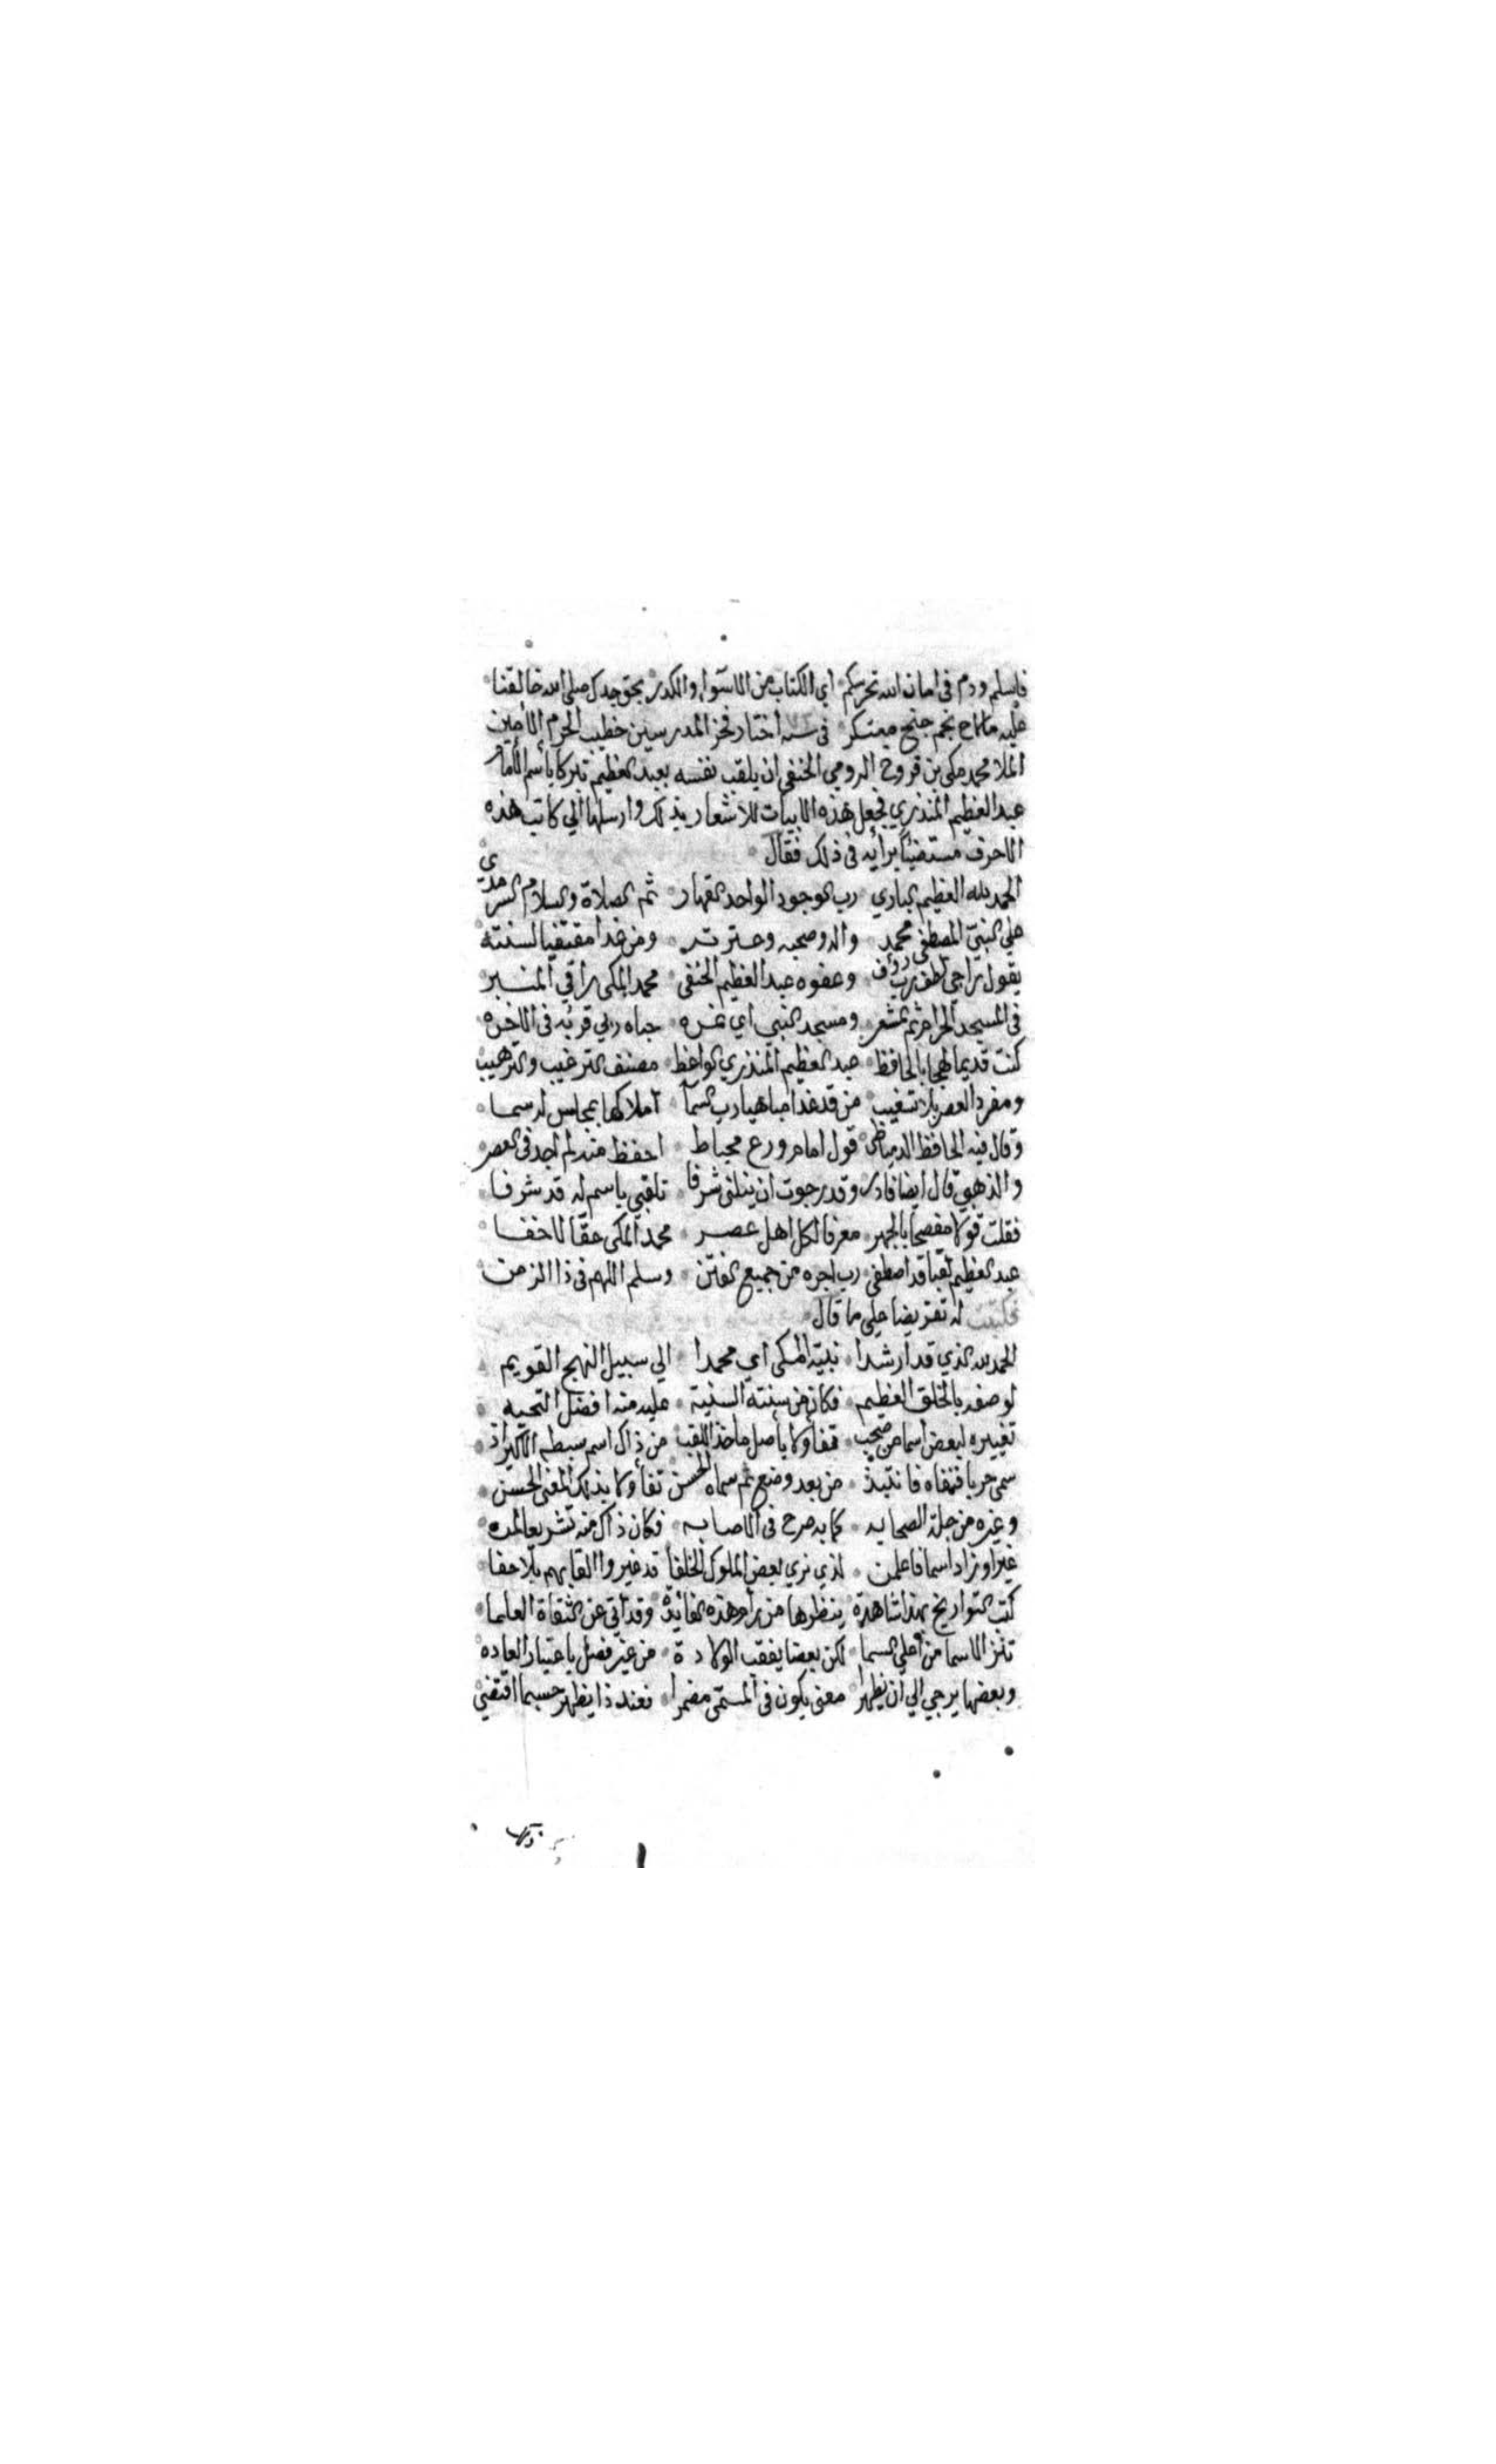 فاسلم ودم في امان الله تحرسكم اي الكتاب من الاسوا والكدر بحق جدك صلى الله خالقنا
عليه ما لاح نجم جنح معتكر في سنه اختار فخر المدرسين خطيب الحرم الامين
الملا محمد مكي بن فروخ الرومي الحنفي ان يلقب نفسه بعبد العظيم تبركا باسم الامام
عبد العظيم المنذري فجعل هذه الابيات للاشعار بذلك وارسلها الي كاتب هذه
الاحرف مستضيئا برأيه في ذلك فقال
الحمد لله العظيم الباري رب الوجود الواحد القهار ثم الصلاة والسلام السرمدي
علي النبي المصطفى محمد واله وصحبه وعترته ومن غدا مقتفيا لسنته
يقول راجي لطف رب رؤف وعفوه عبد العظيم الحنفي محمد المكي راقي المنبر
في المسجد الحرام ثم المشعر ومسجد النبي اي نمره حباه ربي قربه في الاخره
كنت قديما لهجا بالحافظ عبد العظيم المنذري الواعظ مصنف الترغيب والترهيب
ومفرد العصر بلا تشغيب من قد غدا مباهيا رب السما املاكها بمجلس له سما
وقال فيه الحافظ الدمياطي قول امام ورع محتاط احفظ منه لم اجد في العصر
والذهبي قال ايضا فادر وقد رجوت ان ينلني شرفا تلقبي باسم له قد شرفا
فقلت قولا مفصحا بالجهر معرفا لكل اهل عصر محمد المكي حقا لا خفا
عبد العظيم لقبا قد اصطفى رب اجره من جميع الفتن وسلم اللهم في ذا الزمن
فكتبت له تقريضا علي ما قال
الحمد لله الذي قد ارشدا نبيه المكي اي محمدا الي سبيل النهج القويم
لوصفه بالخلق العظيم فكان من سنته السنية عليه منه افضل التحيه
تغييره لبعض اسما من صحب تفاولا باصل ماخذ اللقب من ذاك اسم سبطه الاكبر اذ
سمي حربا فنفاه فانتبذ من بعد وضع ثم سماه الحسن تفاولا بذلك المعنى الحسن
وغيره من جلة الصحابه كما به صرح في الاصابه فكان ذاك منه تشريعا لمن
غير او زاد اسما فاعلمن لذي نري بعض الملوك الخلفا قد غيروا القابهم بلا خفا
كتب التواريخ بهذا شاهدة ينظرها من رام هذه الفايدة وقد اتى عن الثقاة العلما
تنزل الاسما من اعلي السما لكن بعضا يعقب الولادة من غير فصل باعتبار العاده
وبعضها يرجي الي ان يظهرا معنى يكون في المسمى مضمرا فعند ذا يظهر حسبما اقتضي